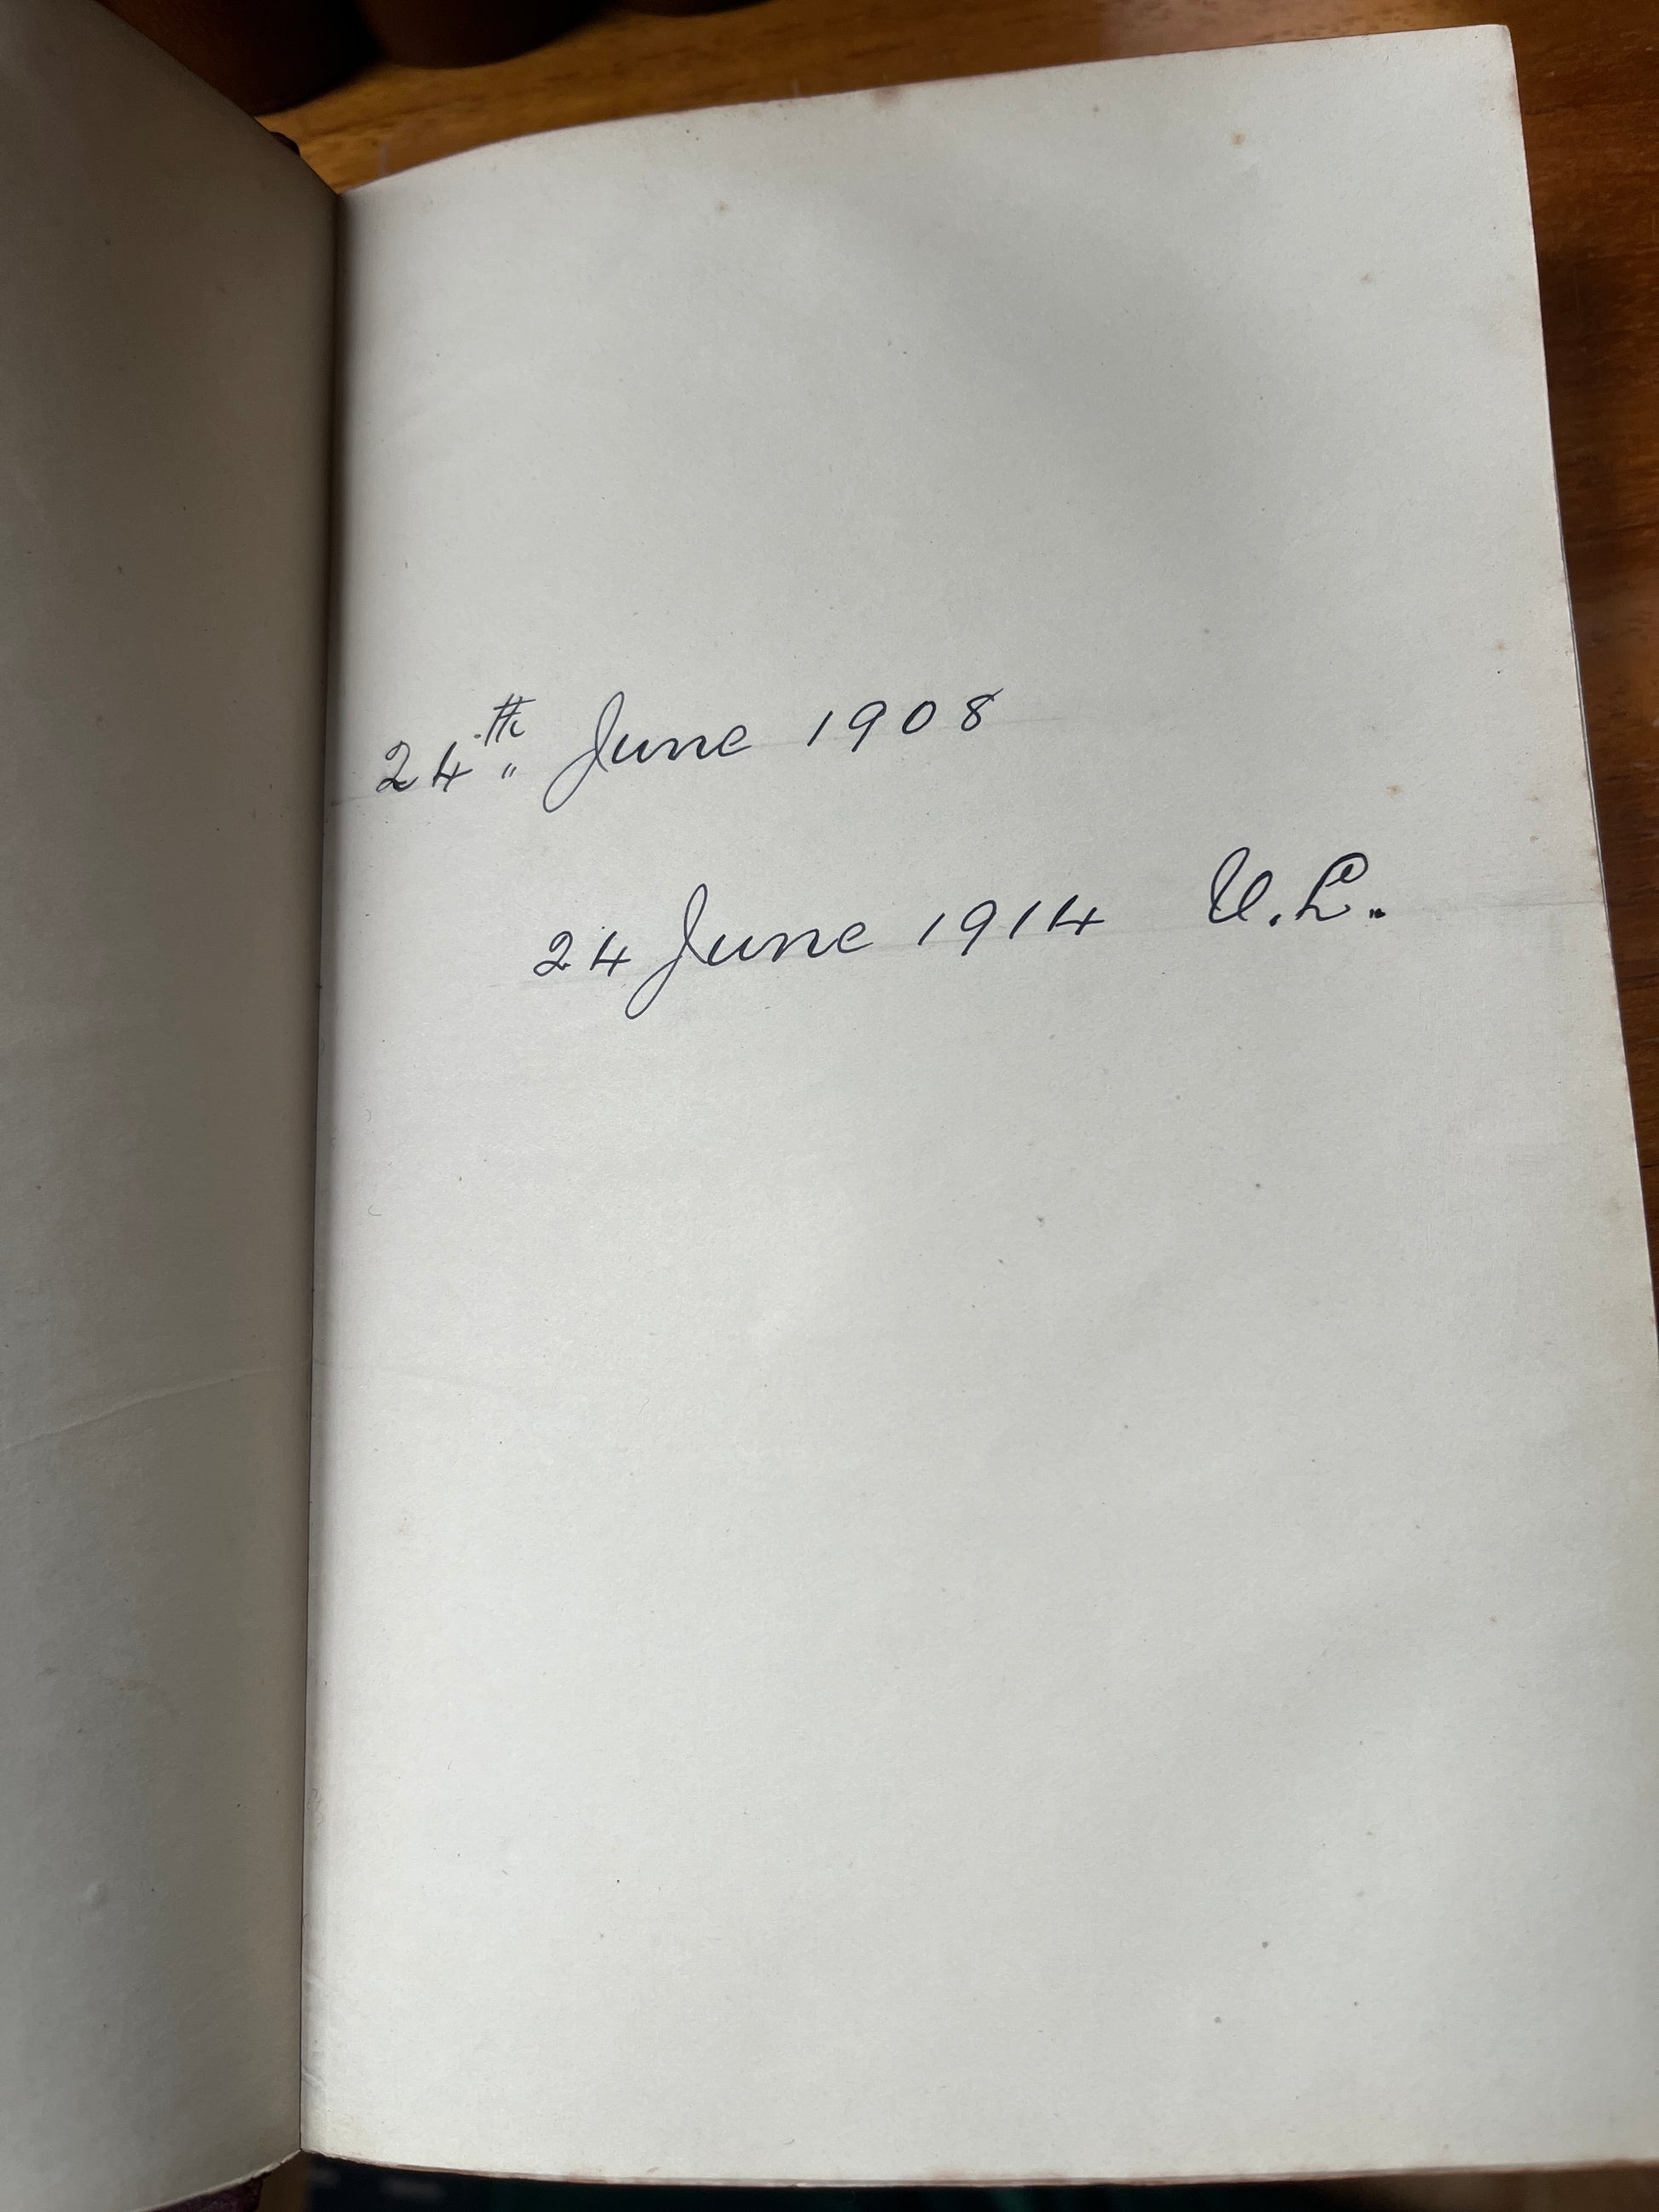 24th June 1908
24 June 1914 V.L.